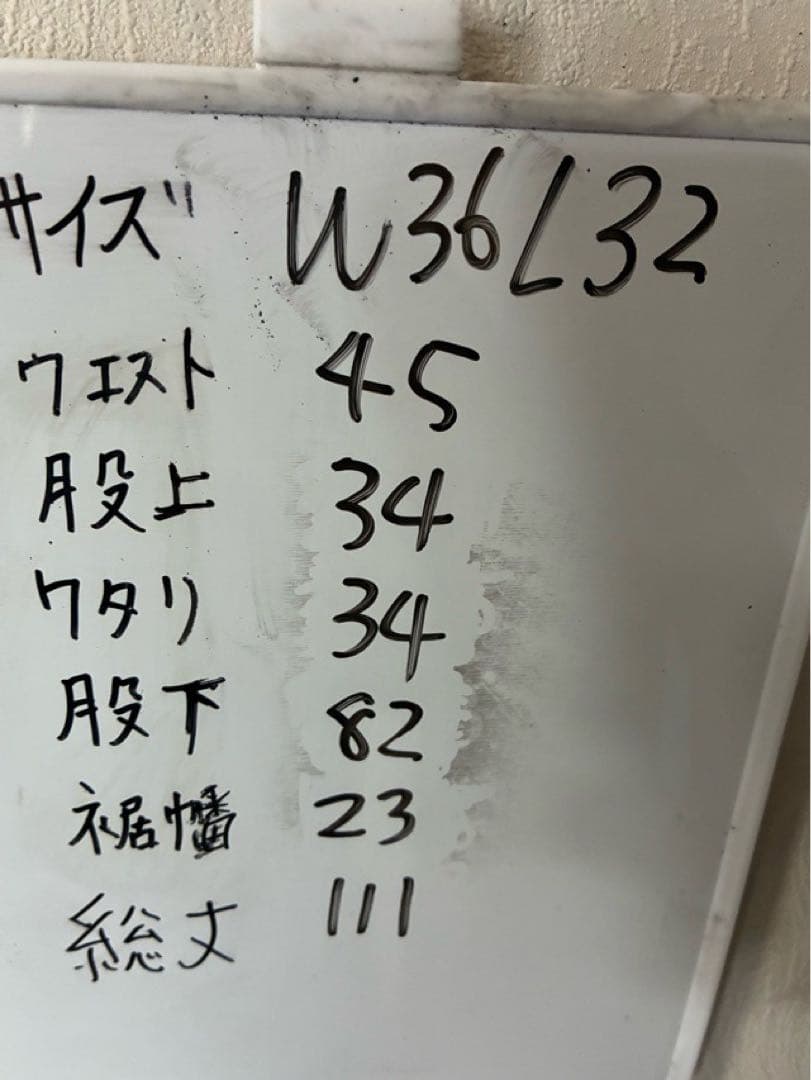 サイズ W36L32
ウエスト 45
股上 34
ワタリ 34
股下 82
裾幡 23
総丈 111